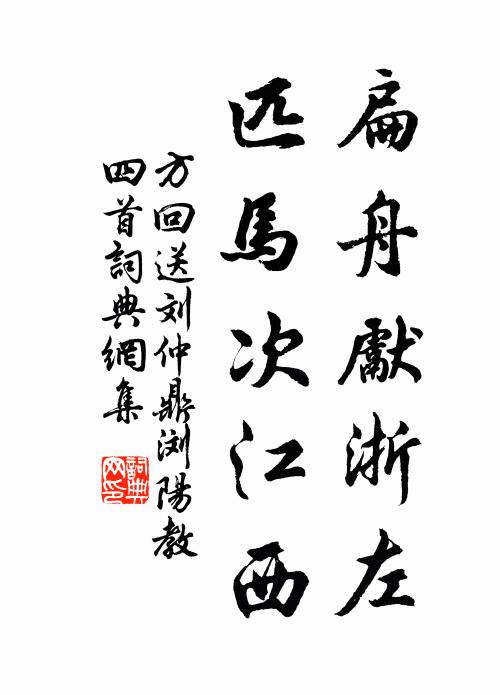 扁舟獻浙左
匹馬次江西
方回送刘仲鼎浏陽教
四首詞典網集
詞典
网印